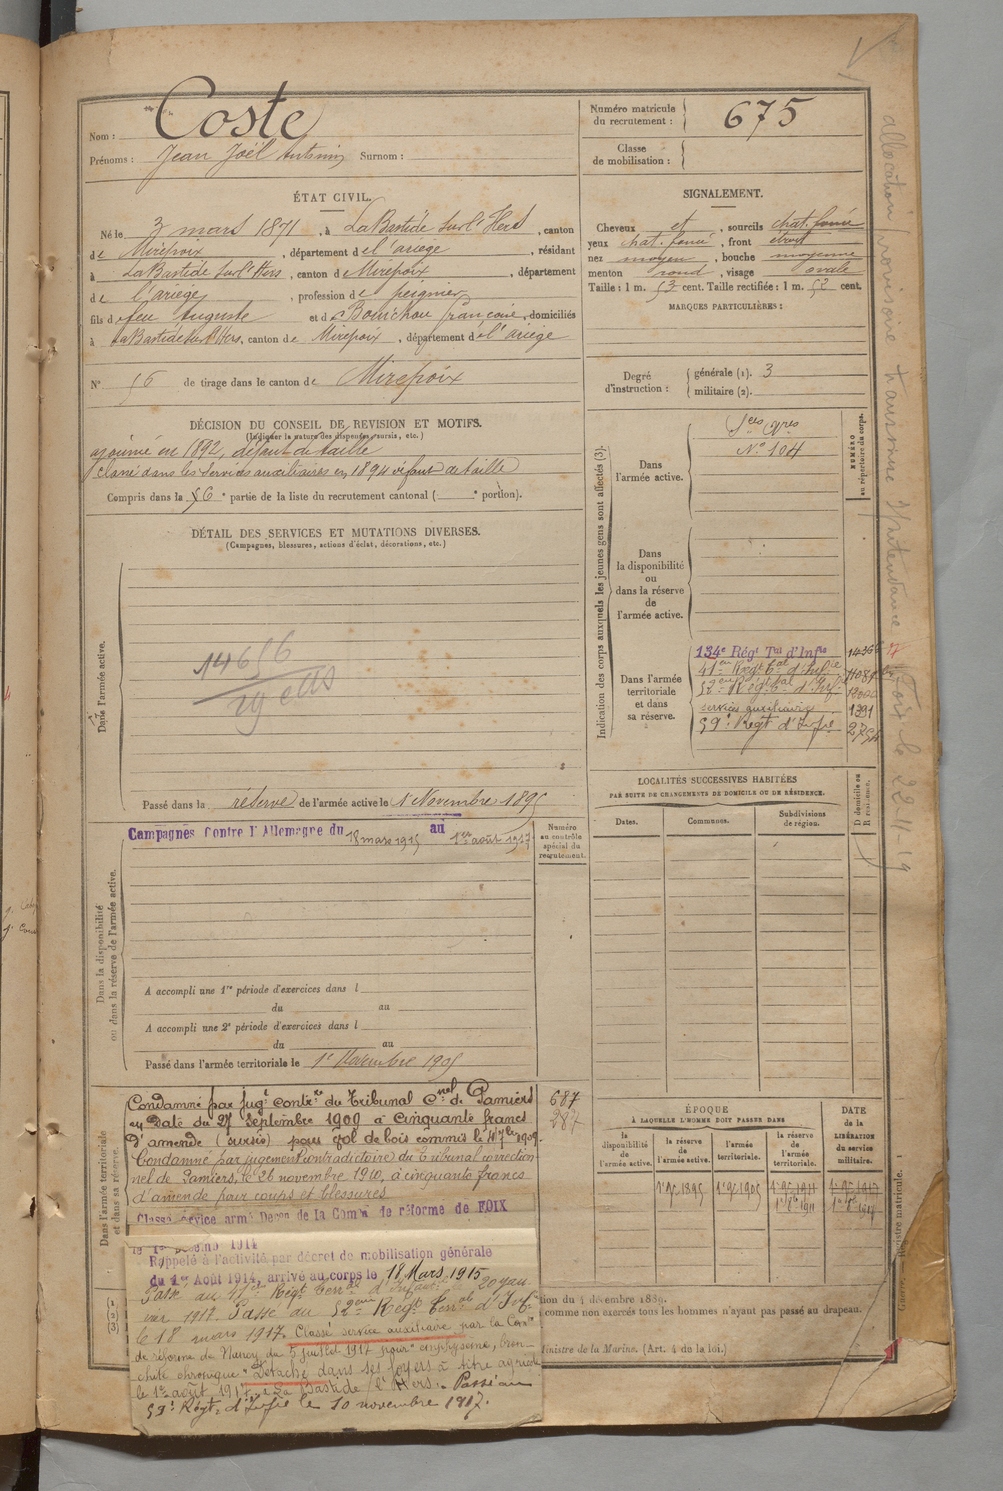 Nom : Coste
Prénoms : Jean Joël Antonin Surnom :
Numéro matricule du recrutement : 675
Classe de mobilisation :
ÉTAT CIVIL.
Né le 3 mars 1871, à La Bastide sur l'Hers, canton
de Mirepoix, département de l'ariège, résidant
à La Bastide sur l'Hers, canton de Mirepoix, département
de l'ariège, profession de peignier
fils de feu Auguste et de Bourichou françoise, domiciliés
à La Bastide sur l'Hers, canton de Mirepoix, département de l'ariège
N° 56 de tirage dans le canton de Mirepoix
SIGNALEMENT.
Cheveux et, sourcils chat. foncé
yeux chat. foncé, front étroit
nez moyen, bouche moyenne
menton rond, visage ovale
Taille : 1 m. 53 cent. Taille rectifiée : 1 m. 52 cent.
MARQUES PARTICULIÈRES :
Degré d'instruction : générale (1). 3
militaire (2).
DÉCISION DU CONSEIL DE REVISION ET MOTIFS.
(Indiquer la nature des dispenses, sursis, etc.)
ajourné en 1892, défaut de taille
classé dans les services auxiliaires en 1894 défaut de taille
Compris dans la 6e partie de la liste du recrutement cantonal ( e portion).
DÉTAIL DES SERVICES ET MUTATIONS DIVERSES.
(Campagnes, blessures, actions d'éclat, décorations, etc.)
Dans l'armée active.
14656
Passé dans la réserve de l'armée active le 1r Novembre 1895
Indication des corps auxquels les jeunes gens sont affectés (3).
NUMÉRO au répertoire du corps.
Dans l'armée active.
Sces Gres
N° 104
Dans la disponibilité ou dans la réserve de l'armée active.
Dans l'armée territoriale et dans sa réserve.
134e Régt Tal d'Infie
41e Régt Tal d'Infie
52e Régt Tal d'Infie
services auxiliaire 1391
59e Régt d'Infie
LOCALITÉS SUCCESSIVES HABITÉES
PAR SUITE DE CHANGEMENTS DE DOMICILE OU DE RÉSIDENCE.
Dates. Communes. Subdivisions de région. D domicile ou R résidence.
Dans la disponibilité ou dans la réserve de l'armée active.
Campagnes Contre l'Allemagne du 18 mars 1915 au 1er août 1917
Numéro au contrôle spécial du recrutement.
A accompli une 1re période d'exercices dans l
du au
A accompli une 2e période d'exercices dans l
du au
Passé dans l'armée territoriale le 1r Novembre 1905
Dans l'armée territoriale et dans sa réserve.
Condamné par jugt contre du Tribunal Cnel de Pamiers
en date du 27 Septembre 1909 à cinquante francs
d'amende (sursis) pour vol de bois commis le 7bre 1909.
Condamné par jugement contradictoire du Tribunal correction-
nel de Pamiers, le 26 novembre 1910, à cinquante francs
d'amende pour coups et blessures
Classé service armé Décon de la Comon de réforme de FOIX
1914
Rappelé à l'activité par décret de mobilisation générale
du 1er Août 1914, arrivé au corps le 18 Mars 1915
Passé au 41e Régt Terral d'Infie 20 jan-
vier 1917. Passé au 52eme Régt Terral d'Infie
le 18 mars 1917. Classé service auxiliaire par la Comon
de réforme de du 5 juillet 1917 pour "emphysème, bron-
chite chronique" Détaché dans ses foyers à titre agricole
le 1er août 1917, La Bastide s/l'Hers. Passé au
59e Régt d'Infie le 10 novembre 1917.
687
287
ÉPOQUE
À LAQUELLE L'HOMME DOIT PASSER DANS
la disponibilité de l'armée active. la réserve de l'armée active. l'armée territoriale. la réserve de l'armée territoriale.
DATE de la LIBÉRATION du service militaire.
1r 9e 1895 1r 9e 1905 1r 9e 1911 1r 9e 1917
tion du 4 décembre 1889.
comme non exercés tous les hommes n'ayant pas passé au drapeau.
Ministre de la Marine. (Art. 4 de la loi.)
(1) (2) (3)
allocation provisoire Intendance Foix le